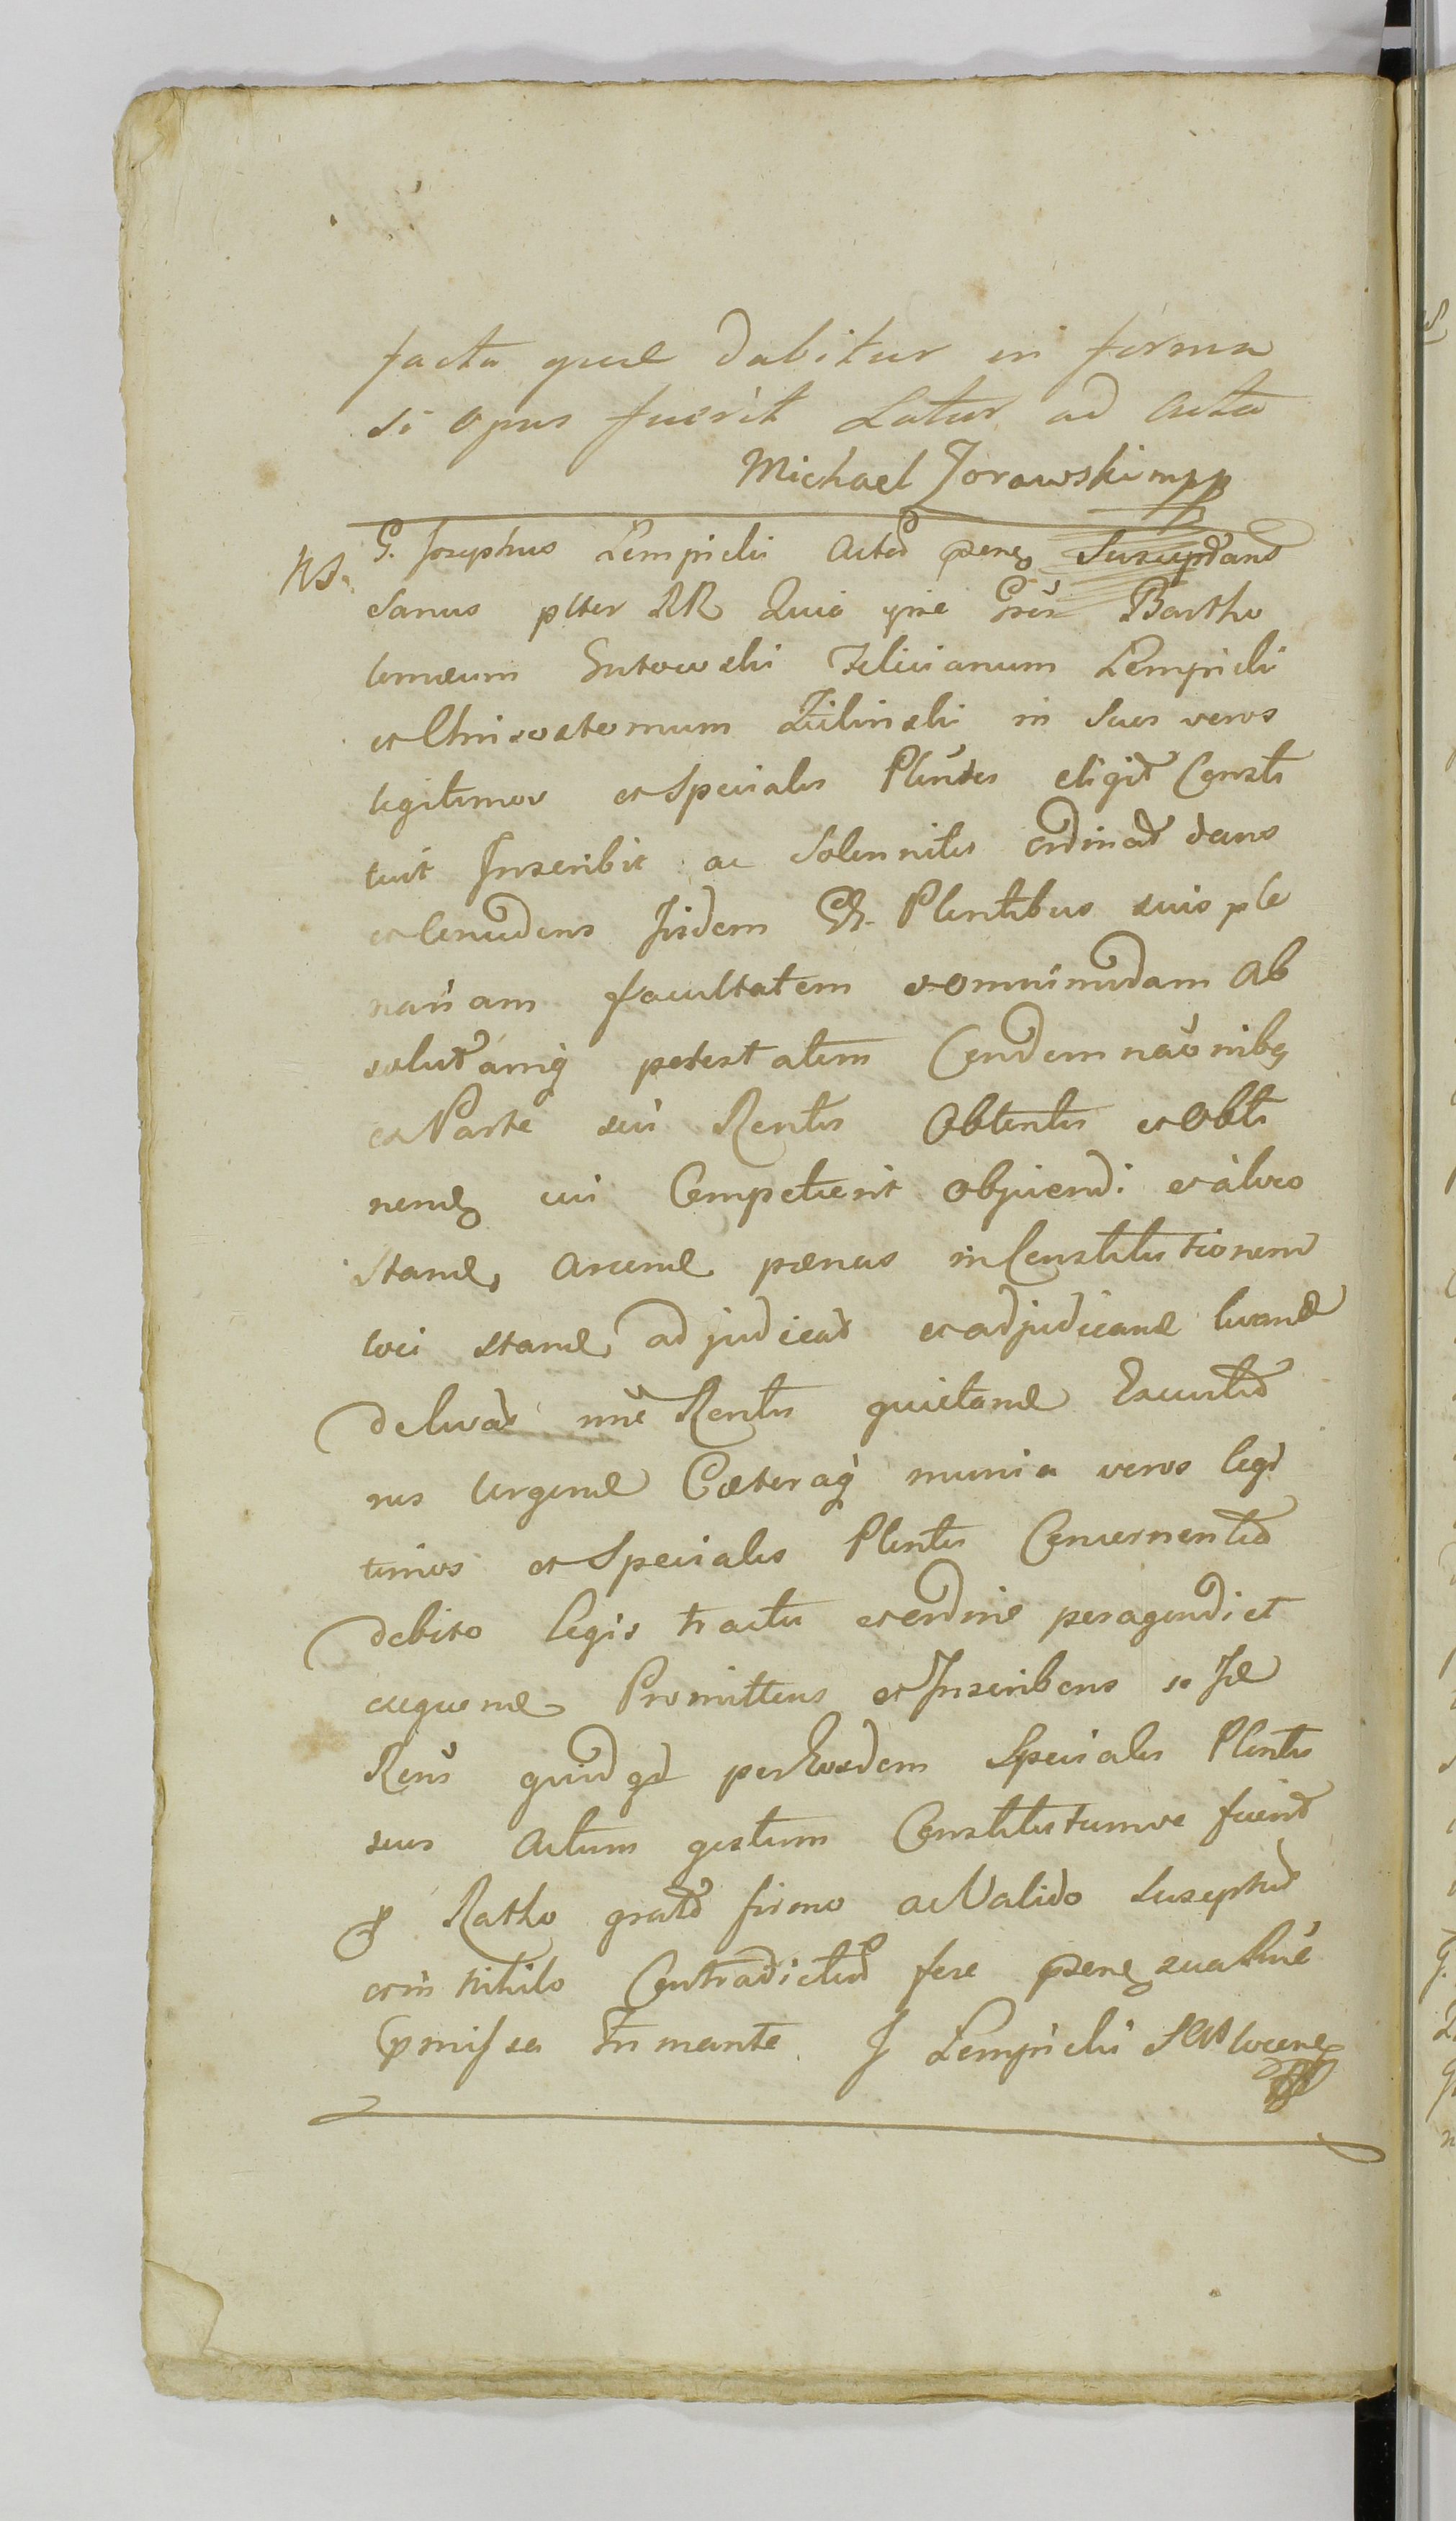 facta quae dabitur in forma
si opus fuerit Latur ad acta
Michael Zorawski mpp
NS. G. Josephus Lempicki Acto psens
sanus plter RR Quia ipse Gsos Bartho
lomeum Gutowski Felicianum Lempicki
et Chrisostomum Zieliński in suos veros
legitimos et Speciales Plentes eligit Consti
tuit Inscribit ac Solenniter ordinat dans
et Concedens Iisdem GG. Plentibus suis ple
nariam facultatem et omnimodam Ab
solutamq potestatem Condemnaonibg
ex Parte sui Rentis Obtentis et Obti
nend cui Competierit objiciendi et
stand Arcend poenas in Constitutionem
loci stand adjudicat et adjudicand luend
deluat Rentis quietand
nes Urgend Caeteraq munia veros legi
timos et Speciales Plentes Concernentia
debito legis tractu et ordine peragendi et
exequend Promittens et Inscribens se Id
Rens quidqd per Eosdem Speciales Plentes
suos Actum gestum Constitutumve fuerit
Ratho grato firmo ac Valido Suscept
et in Nihilo Contradict fore psens
pmissa J Lempicki